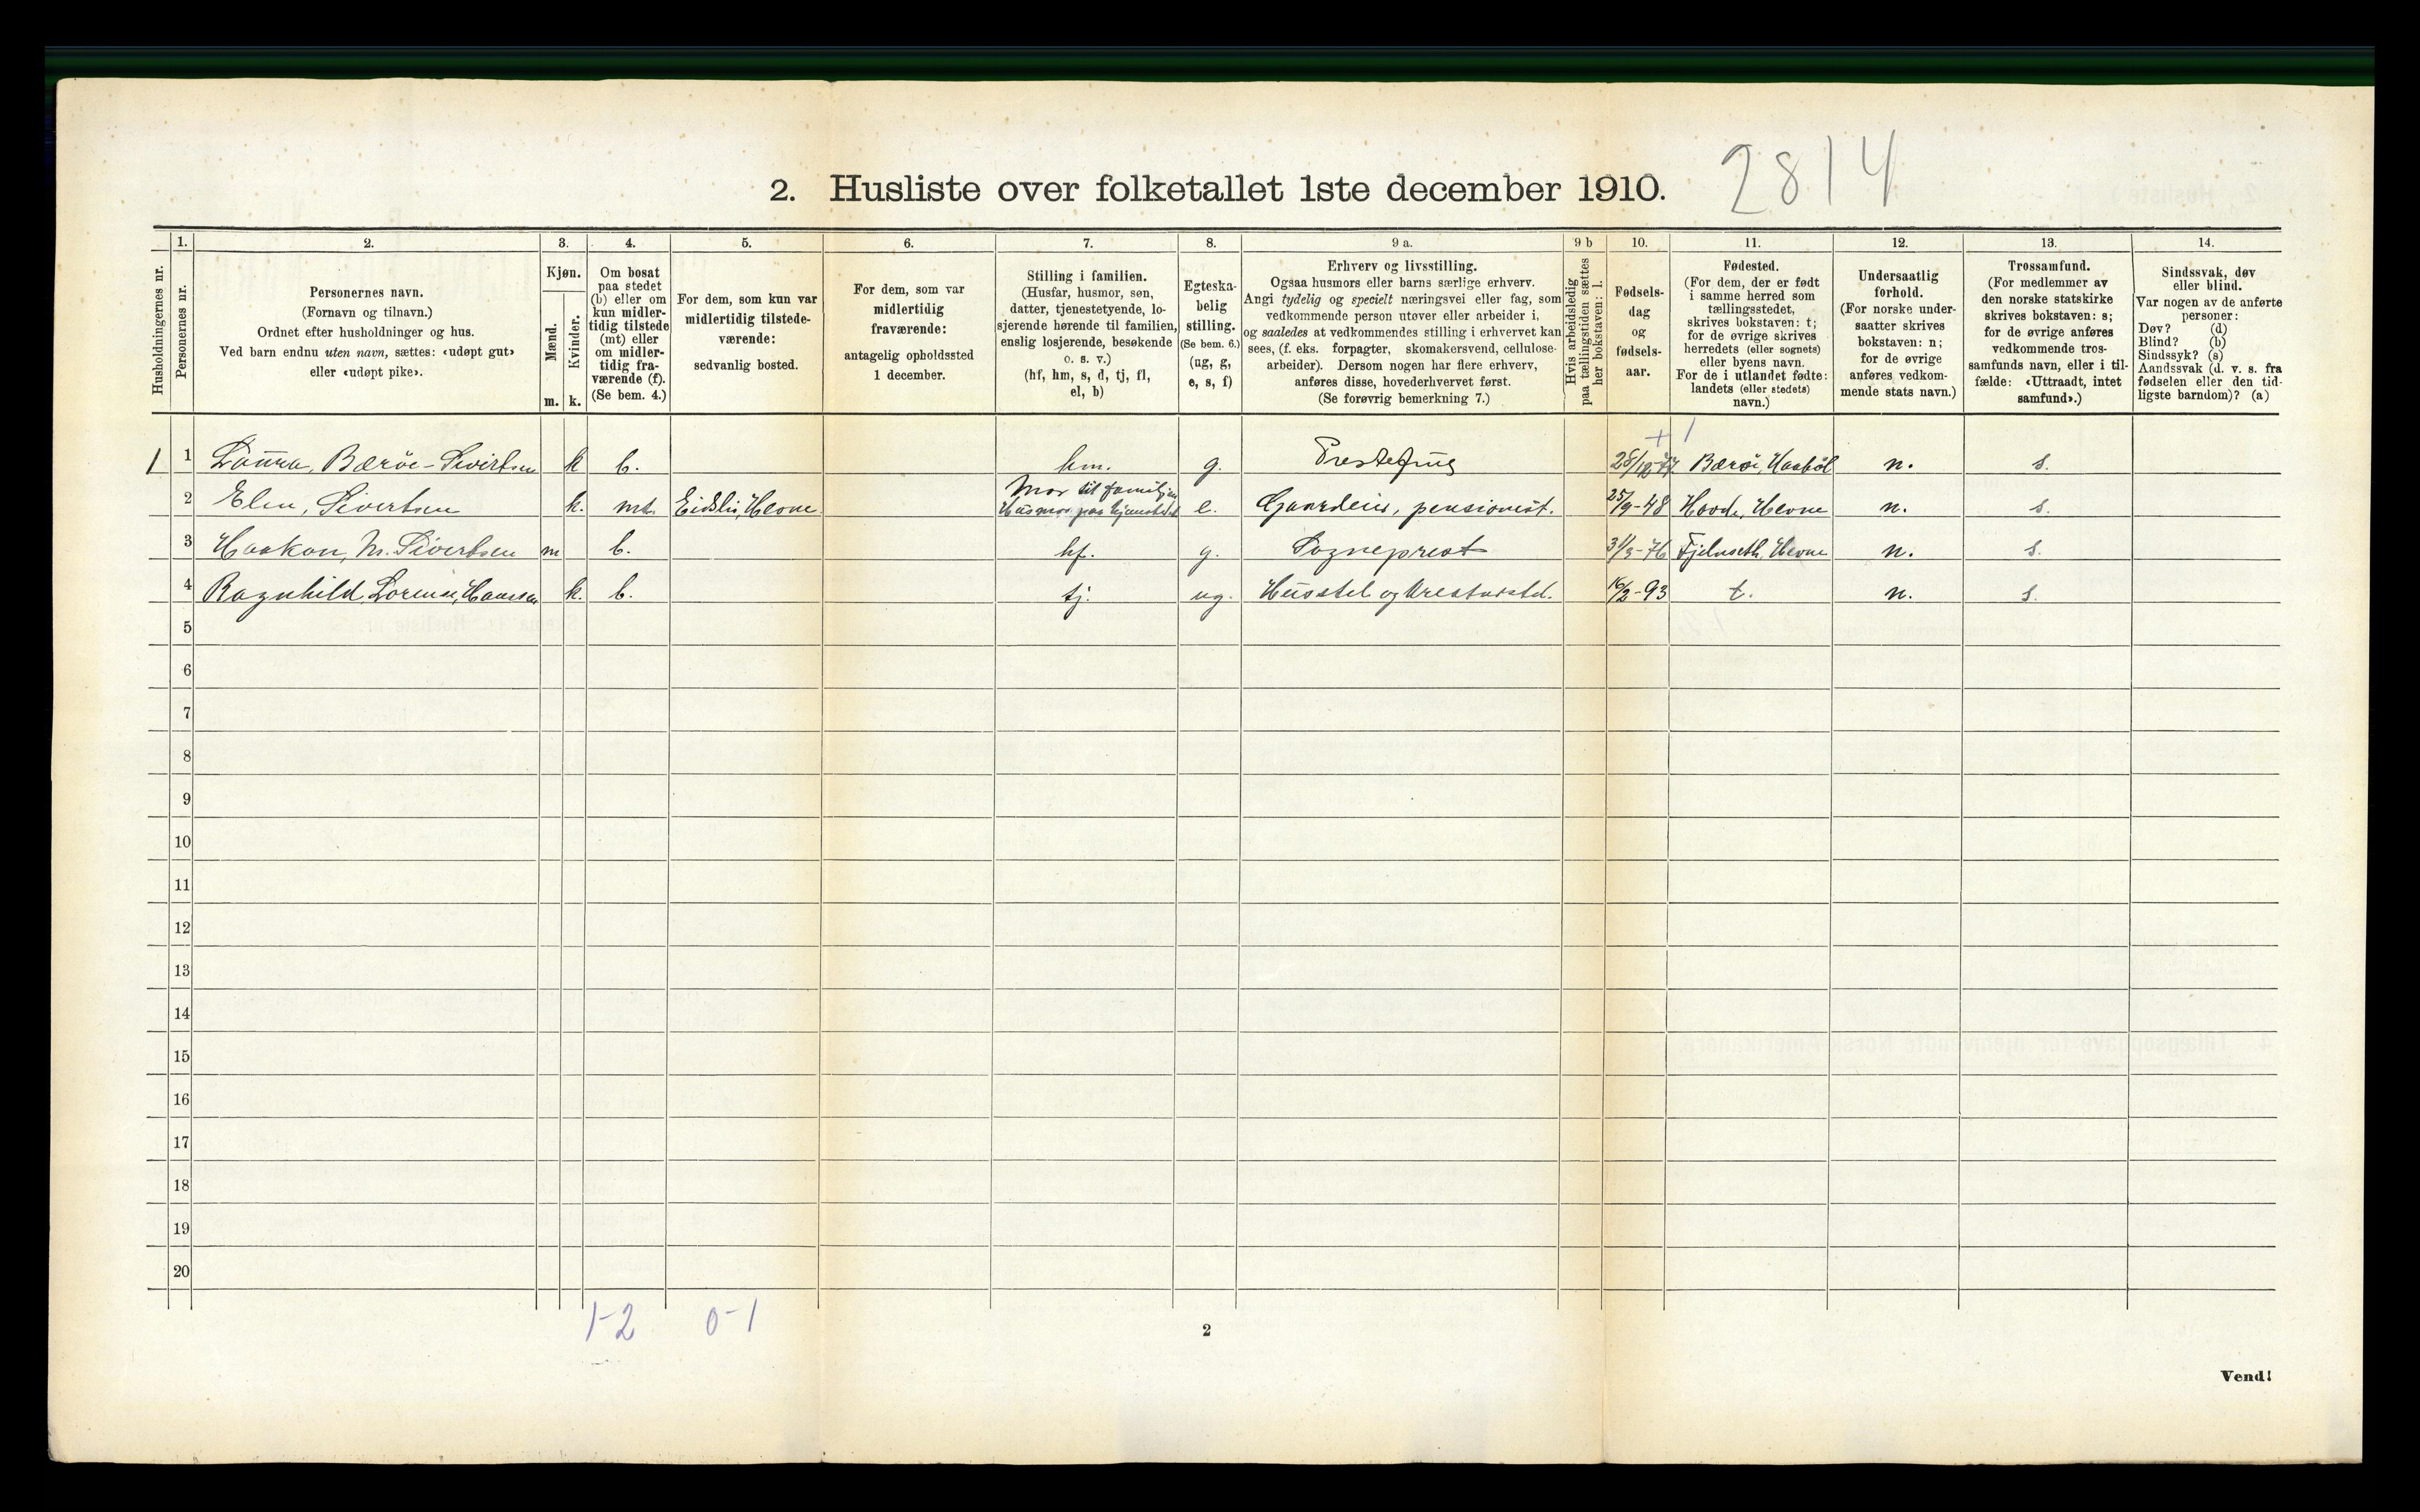 2814
2. Husliste over folketallet 1ste december 1910.
1. 2. 3. 4. 5. 6. 7. 8. 9 a. 9 b 10. 11. 12. 13. 14.
Husholdningernes nr.
Personernes nr.
Personernes navn.
(Fornavn og tilnavn.)
Ordnet efter husholdninger og hus.
Ved barn endnu uten navn, sættes: «udøpt gut»
eller «udøpt pike».
Kjøn.
Mænd.
Kvinder.
m. k.
Om bosat
paa stedet
(b) eller om
kun midler-
tidig tilstede
(mt) eller
om midler-
tidig fra-
værende (f).
(Se bem. 4.)
For dem, som kun var
midlertidig tilstede-
værende:
sedvanlig bosted.
For dem, som var
midlertidig
fraværende:
antagelig opholdssted
1 december.
Stilling i familien.
(Husfar, husmor, søn,
datter, tjenestetyende, lo-
sjerende hørende til familien,
enslig losjerende, besøkende
o. s. v.)
(hf, hm, s, d, tj, fl,
el, b)
Egteska-
belig
stilling.
(Se bem. 6.)
(ug, g,
e, s, f)
Erhverv og livsstilling.
Ogsaa husmors eller barns særlige erhverv.
Angi tydelig og specielt næringsvei eller fag, som
vedkommende person utøver eller arbeider i,
og saaledes at vedkommendes stilling i erhvervet kan
sees, (f. eks. forpagter, skomakersvend, cellulose-
arbeider). Dersom nogen har flere erhverv,
anføres disse, hovederhvervet først.
(Se forøvrig bemerkning 7.)
Hvis arbeidsledig
paa tællingstiden sættes
her bokstaven: l.
Fødsels-
dag
og
fødsels-
aar.
Fødested.
(For dem, der er født
i samme herred som
tællingsstedet,
skrives bokstaven: t;
for de øvrige skrives
herredets (eller sognets)
eller byens navn.
For de i utlandet fødte:
landets (eller stedets)
navn.)
Undersaatlig
forhold.
(For norske under-
saatter skrives
bokstaven: n;
for de øvrige
anføres vedkom-
mende stats navn.)
Trossamfund.
(For medlemmer av
den norske statskirke
skrives bokstaven: s;
for de øvrige anføres
vedkommende tros-
samfunds navn, eller i til-
fælde: «Uttraadt, intet
samfund».)
Sindssvak, døv
eller blind.
Var nogen av de anførte
personer:
Døv? (d)
Blind? (b)
Sindssyk? (s)
Aandssvak (d. v. s. fra
fødselen eller den tid-
ligste barndom)? (a)
1 1 Laura, Barøe-Sivertsen k b. hm. g. Prestefrue Barøe, n. s.
2 Elen, Sivertsen k. mt. Eidsli, Hevne Mor til familjen
Husmor paa hjemstedet e. pensionist. 25/9-48 Hevne n. s.
3 Haakon, M. Sivertsen m b. hf. g. Sogneprest 31/3-76 Fjelnseth, Hevne n. s.
4 Ragnhild, Hanssen k. b. tj. ug. Husstel og kreaturstel. 16/2-93 t. n. s.
5
6
7
8
9
10
11
12
13
14
15
16
17
18
19
20
1-2 0-1
2
Vend!